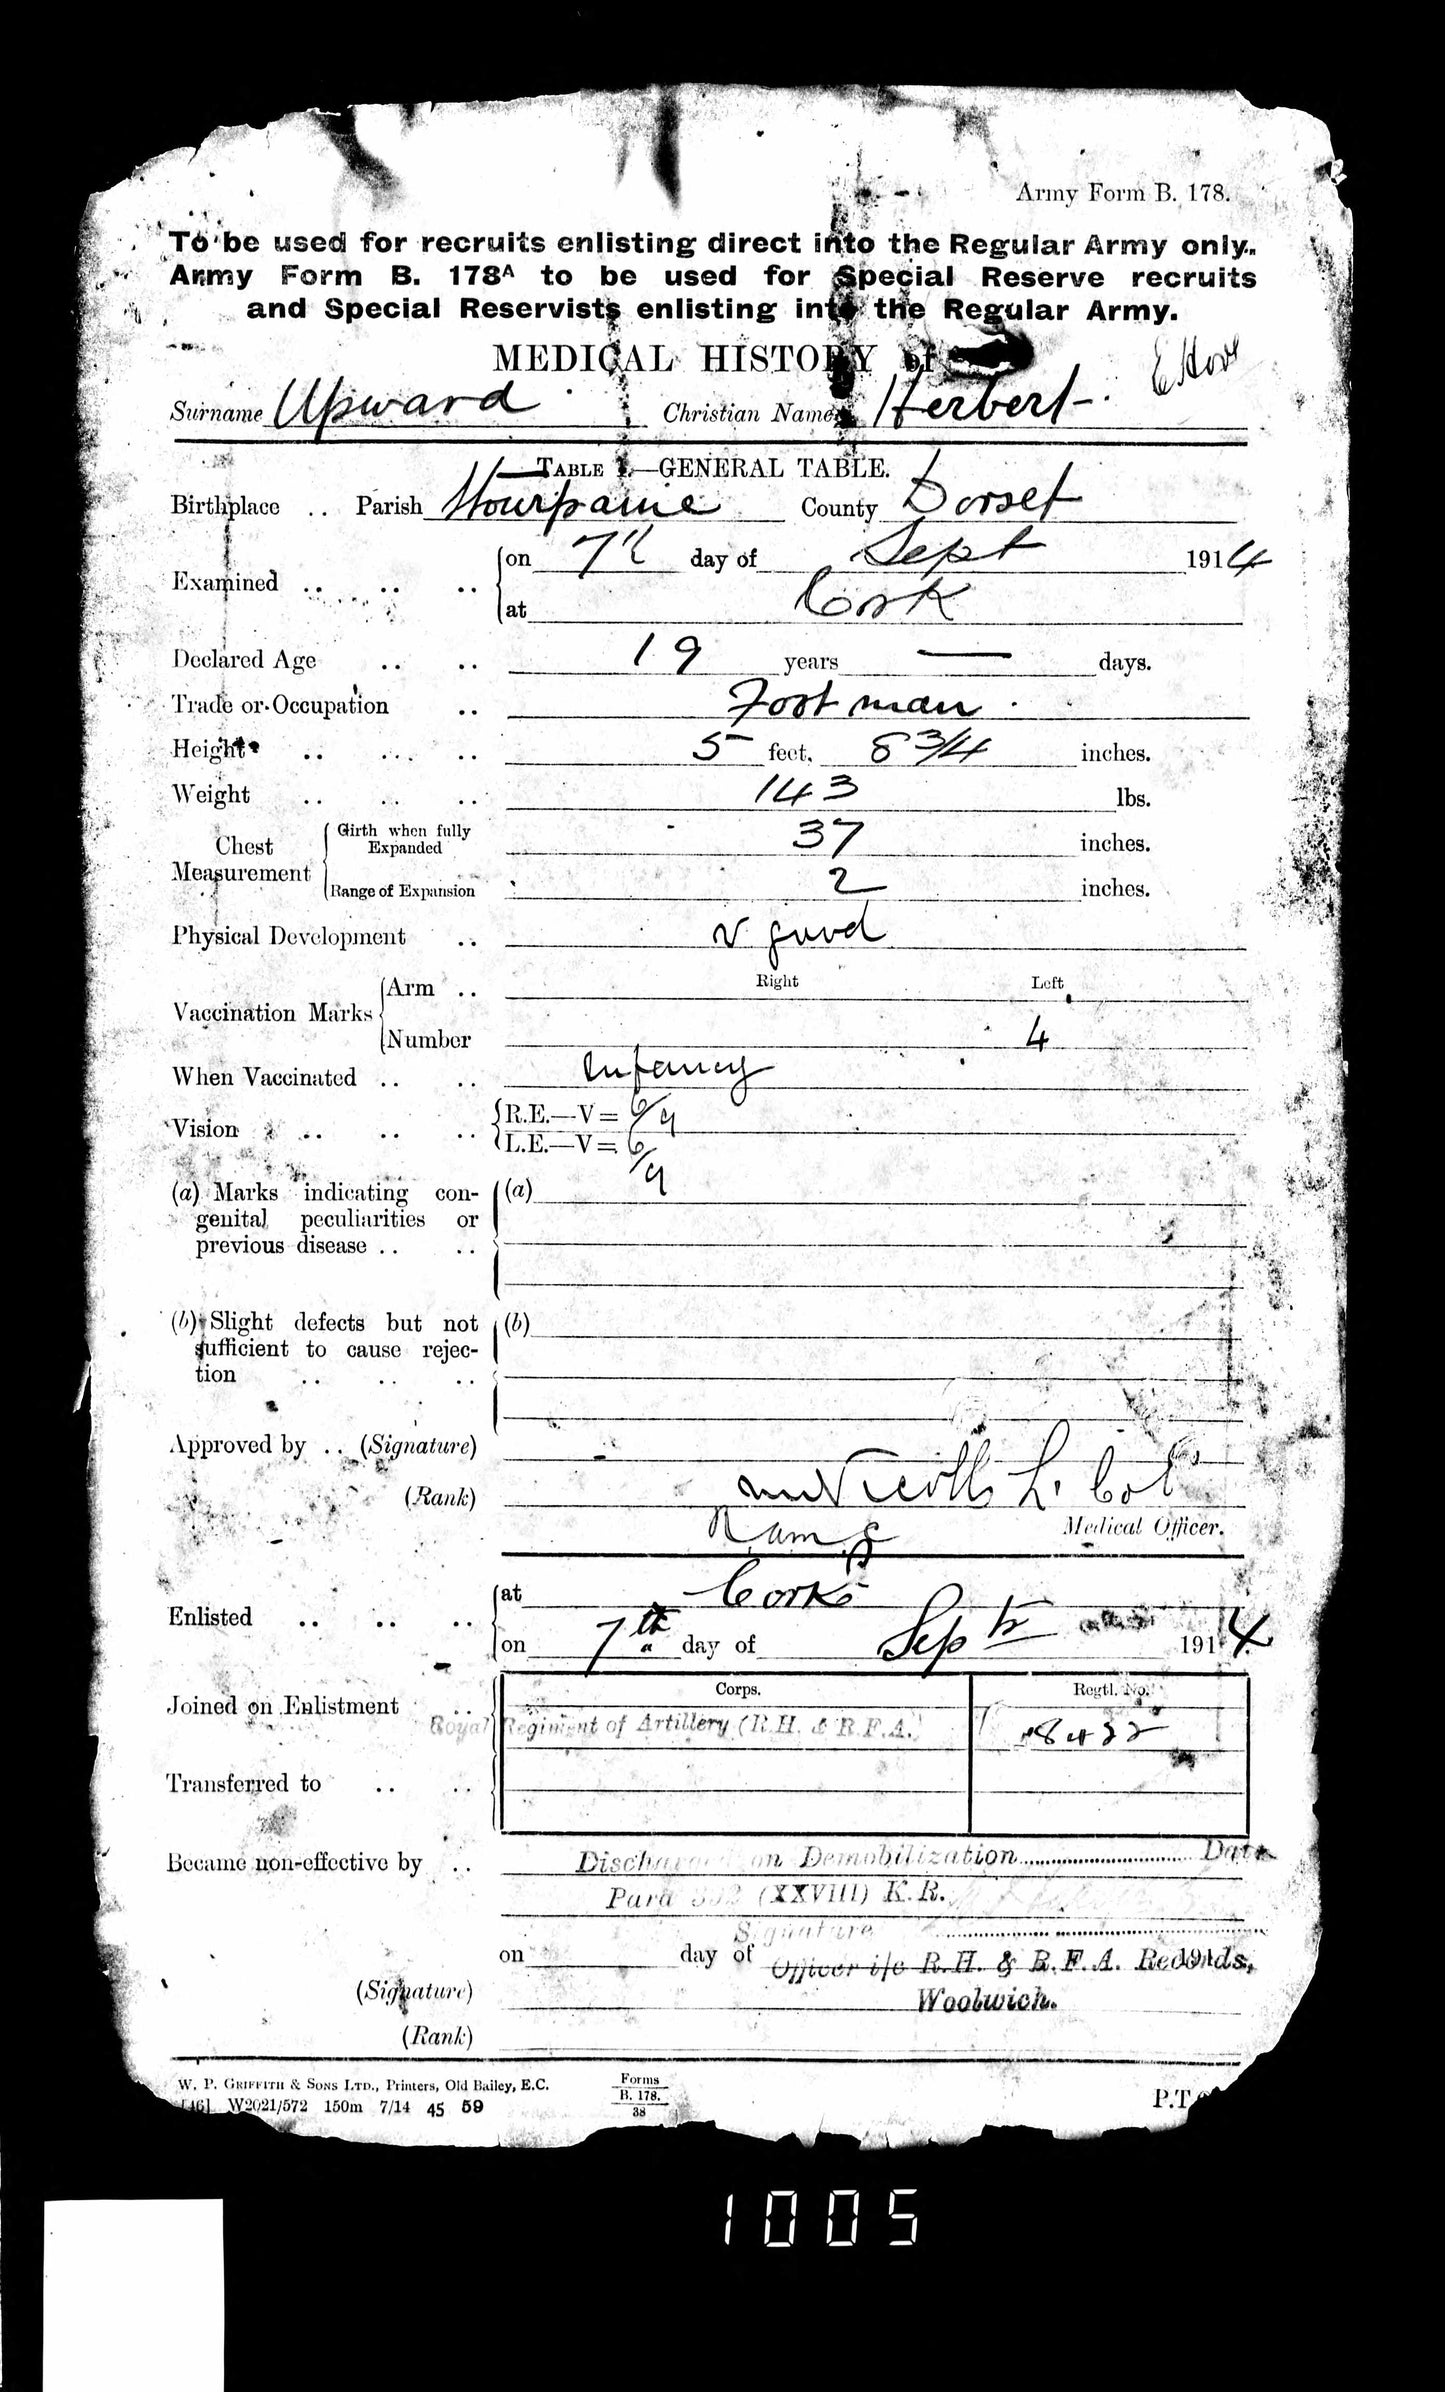 Army Form B. 178.
To be used for recruits enlisting direct into the Regular Army only.
Army Form B. 178A to be used for Special Reserve recruits
and Special Reservists enlisting into the Regular Army.
MEDICAL HISTORY of
Surname Upward Christian Name Herbert
TABLE I.—GENERAL TABLE.
Birthplace .. Parish Stourpaine County Dorset
Examined .. .. .. on 7th day of Sept 1914
at Cork
Declared Age .. .. 19 years — days.
Trade or Occupation .. Footman
Height .. ... .. 5 feet, 8 3/4 inches.
Weight .. .. .. 143 lbs.
Chest Measurement Girth when fully Expanded 37 inches.
Range of Expansion 2 inches.
Physical Development .. v good
Right Left
Vaccination Marks Arm ..
Number 4
When Vaccinated .. .. Infancy
Vision .. .. .. R.E.—V= 6/9
L.E.—V= 6/9
(a) Marks indicating con- (a)
genital peculiarities or
previous disease .. ..
(b) Slight defects but not (b)
sufficient to cause rejec-
tion .. .. ..
Approved by .. (Signature)
(Rank) L. Col
Medical Officer.
Enlisted .. .. .. at Cork
on 7th day of Sept 1914
Corps. Regtl. No.
Joined on Enlistment .. Royal Regiment of Artillery (R.H. & R.F.A.)
Transferred to .. ..
Became non-effective by .. Discharged on Demobilization Date
Para 392 (XXVIII) K.R.
Signature
on day of 191
Officer i/c R.H. & R.F.A. Records,
(Signature) Woolwich.
(Rank)
W. P. GRIFFITH & SONS LTD., Printers, Old Bailey, E.C. Forms
B. 178.
38
[46] W2021/572 150m 7/14 45 59 P.T.
1005